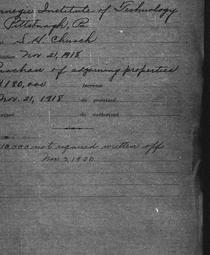 negie Institute of Technology
Pittsburgh, Pa
S. H. Church
Nov. 21, 1918
Purchase of adjoining properties
$180,000
Increase
Nov. 21, 1918 do promised
do authorized
10,000 not required written off
Nov 2, 1920